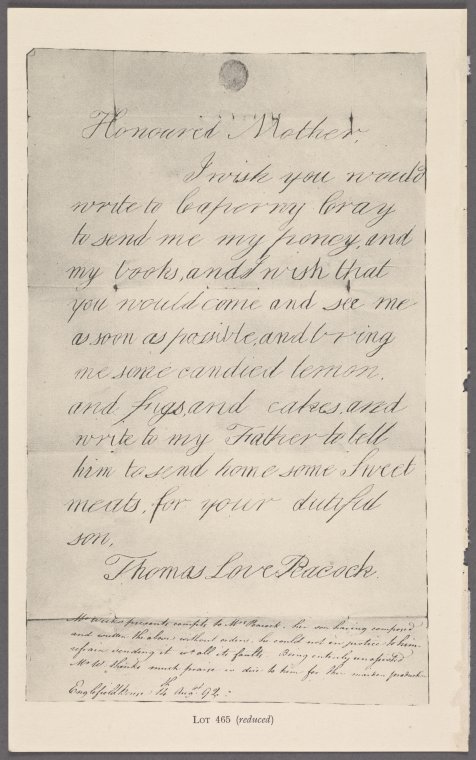 Honoured Mother,
I wish you would
write to Caperny Cray
to send me my poney, and
my books, and I wish that
you would come and see me
as soon as possible, and bring
me some candied lemon,
and figs, and cakes, and
write to my Father to tell
him to send home some Sweet
meats, for your dutiful
son,
Thomas Love Peacock.
Mr Wicks presents compts to Mrs Peacock, her son having composed
and written the above without orders, he could not in justice to him
refrain sending it wth all its faults. Being entirely unassisted
Mr W. thinks much praise is due to him for this maiden production
Englefield House 14th Augst 92
LOT 465 (reduced)